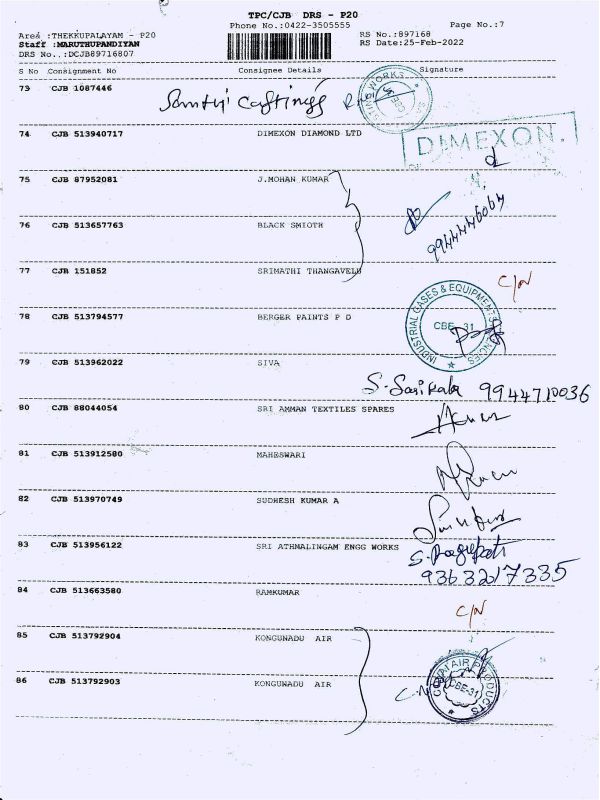 TPC/CJB DRS - P20
Phone No.:0422-3505555
Page No.:7
Area :THEKKUPALAYAM - P20
RS No.:897168
Staff :MARUTHUPANDIYAN
RS Date:25-Feb-2022
DRS No.:DCJB89716807
S No Consignment No Consignee Details Signature
73 CJB 1087446
74 CJB 513940717 DIMEXON DIAMOND LTD
DIMEXON
75 CJB 87952081 J.MOHAN KUMAR
76 CJB 513657763 BLACK SMIOTH
77 CJB 151852 SRIMATHI THANGAVELU
C/N
78 CJB 513794577 BERGER PAINTS P D
INDUSTRIAL GASES & EQUIPMENTS AGENCIES
CBE-31
79 CJB 513962022 SIVA
S. Sasikala 9944710036
80 CJB 88044054 SRI AMMAN TEXTILES SPARES
81 CJB 513912580 MAHESWARI
82 CJB 513970749 SUDHESH KUMAR A
83 CJB 513956122 SRI ATHMALINGAM ENGG WORKS
9363217335
84 CJB 513663580 RAMKUMAR
C/N
85 CJB 513792904 KONGUNADU AIR
86 CJB 513792903 KONGUNADU AIR
AIR PRODUCTS
CBE-31